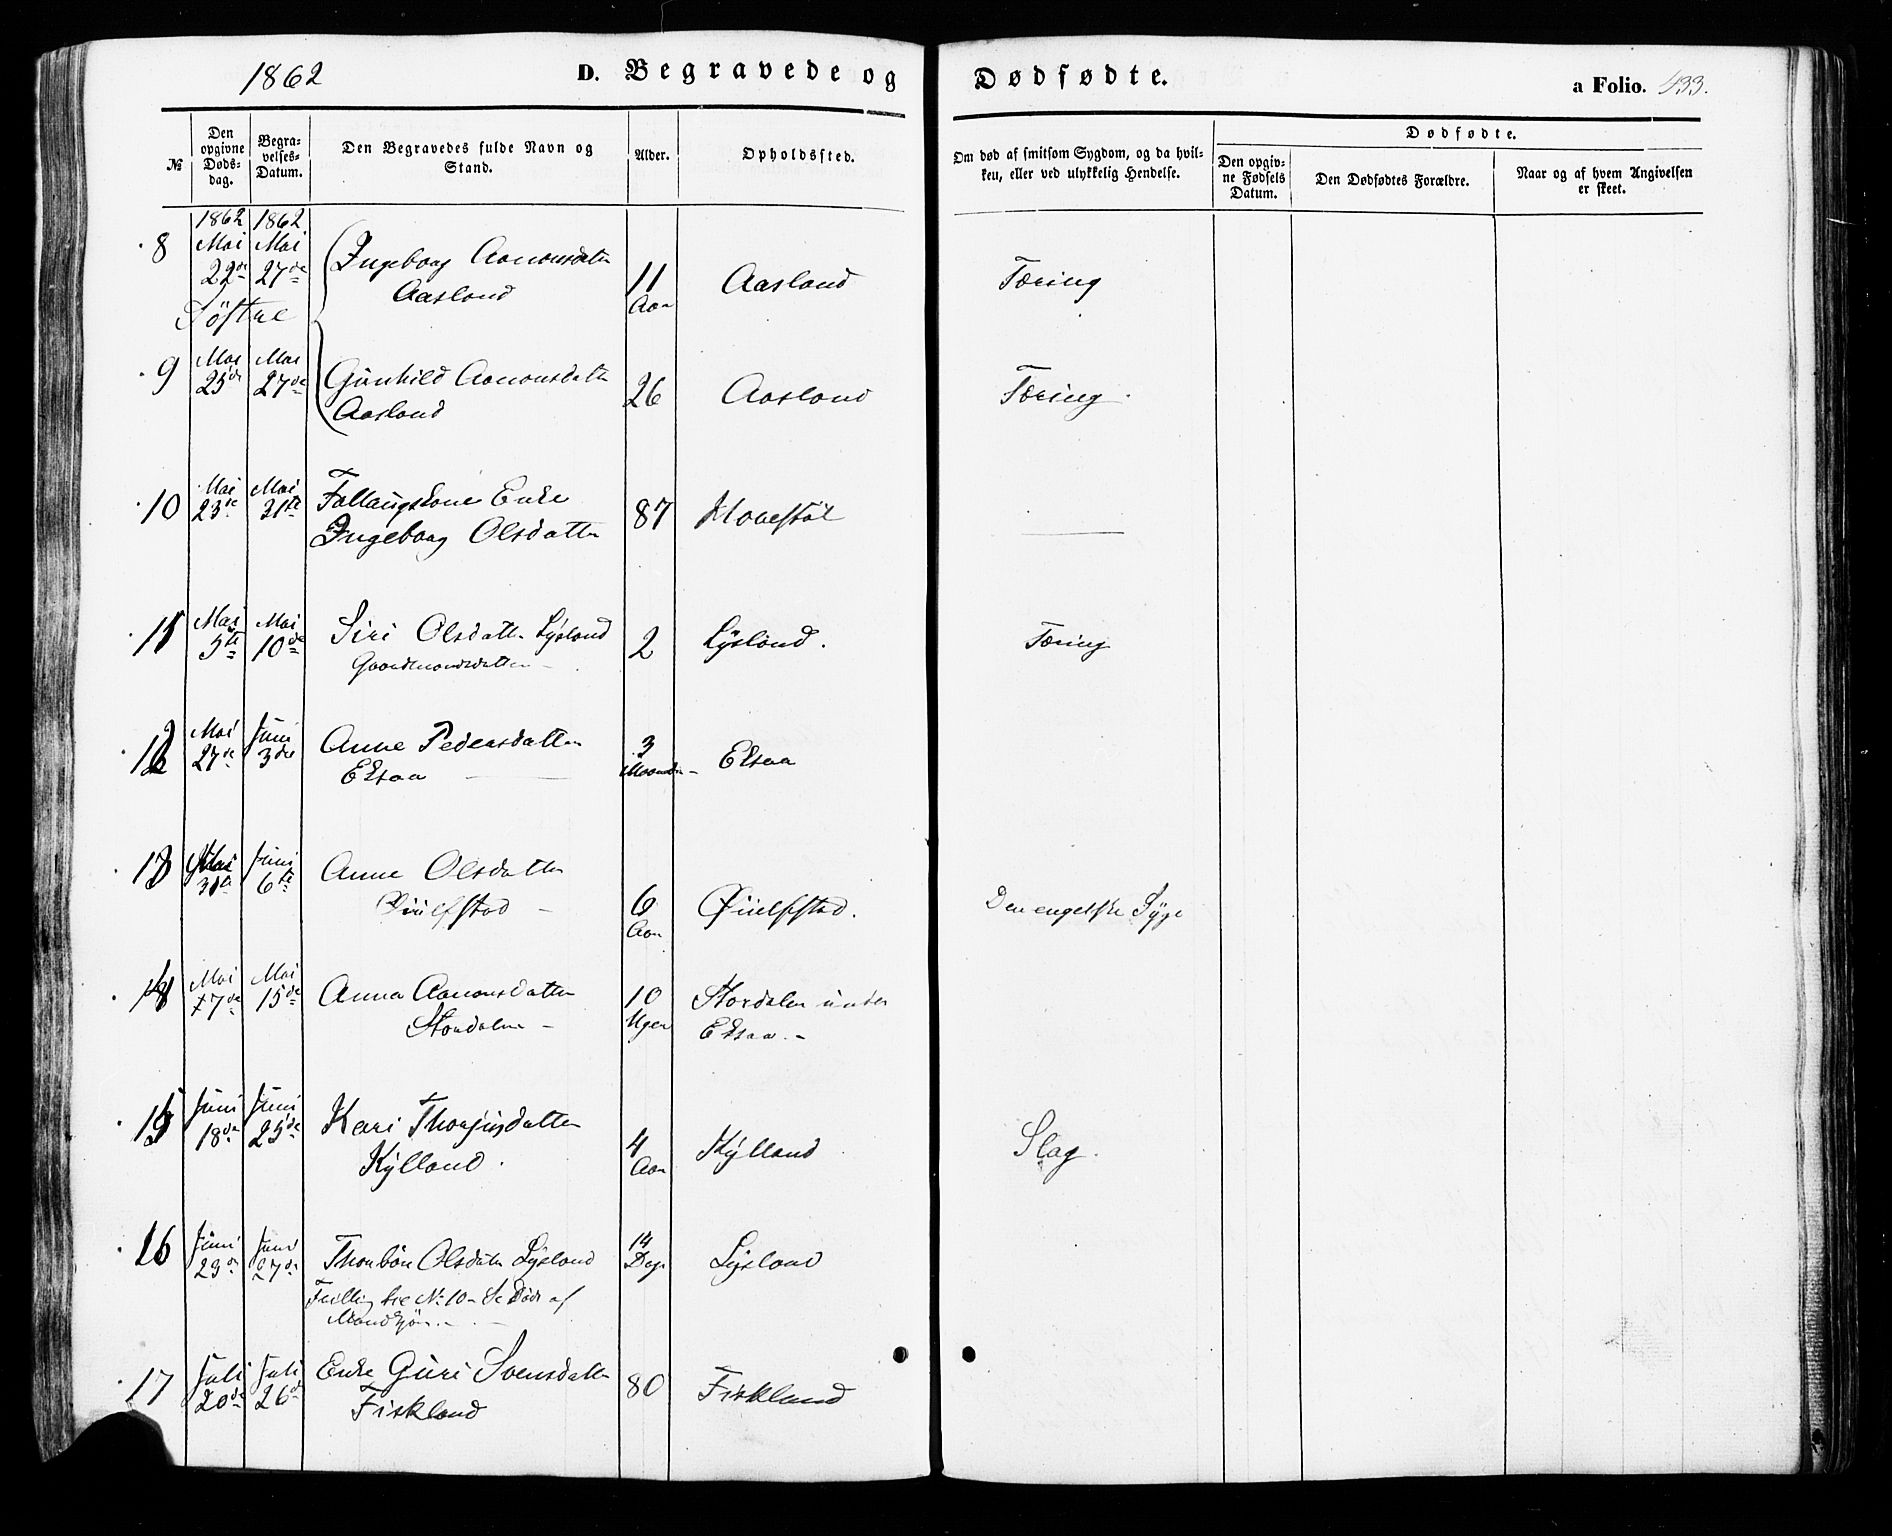 1862 D. Begravede og Dødfødte. a Folio. 433.
№ Den opgivne Døds-dag. Begra-velses-Datum. Den Begravedes fulde Navn og Stand. Alder. Opholdssted. Om død af smitsom Sygdom, og da hvil-ken, eller ved ulykkelig Hendelse. Dødfødte. Den opgiv-ne Fødsels Datum. Den Dødfødtes Forældre. Naar og af hvem Angivelsen er skeet.
1862 1862
8 Mai 22de Mai 27de Ingeborg Aanonsdatter 11 Aasland Tæring
Aasland Aar
Søstre
9 Mai 25de Mai 27de Gunhild Aanonsdatter 26 Aasland Tæring.
Aasland
10 Mai 23de Mai 31te Føllaugskone Enke 87 Klovestøl —
Ingeborg Olsdatter
11 Mai 5te Mai 10de Siri Olsdatter Lysland 2 Lysland. Tæring
Gaardmandsdatter –
12 Mai 27de Juni 3die Anne Pedersdatter 3 Eksaa
Eksaa — Maaneder
13 Mai 31te Juni 6te Anne Olsdatter
Øiulfstad – 6 Øiulfstad. Den engelske Syge
Aar
14 Mai 7de Mai 15de Anna Aanonsdatter 10 Stordalen under
Stordalen – Uger Eksaa. –
15 Juni 18de Juni 25de Kari Thorjusdatter 4 Kylland Slag.
Kylland. Aar
16 Juni 23de Juni 27de Thorbør Olsdatter Lysland 14 Dage Lysland
Tvilling see No 10 – Se Døde af
Mandkjøn. –
17 Juli 20de Juli 26de Enke Guri Svensdatter 80 Fiskland
Fiskland